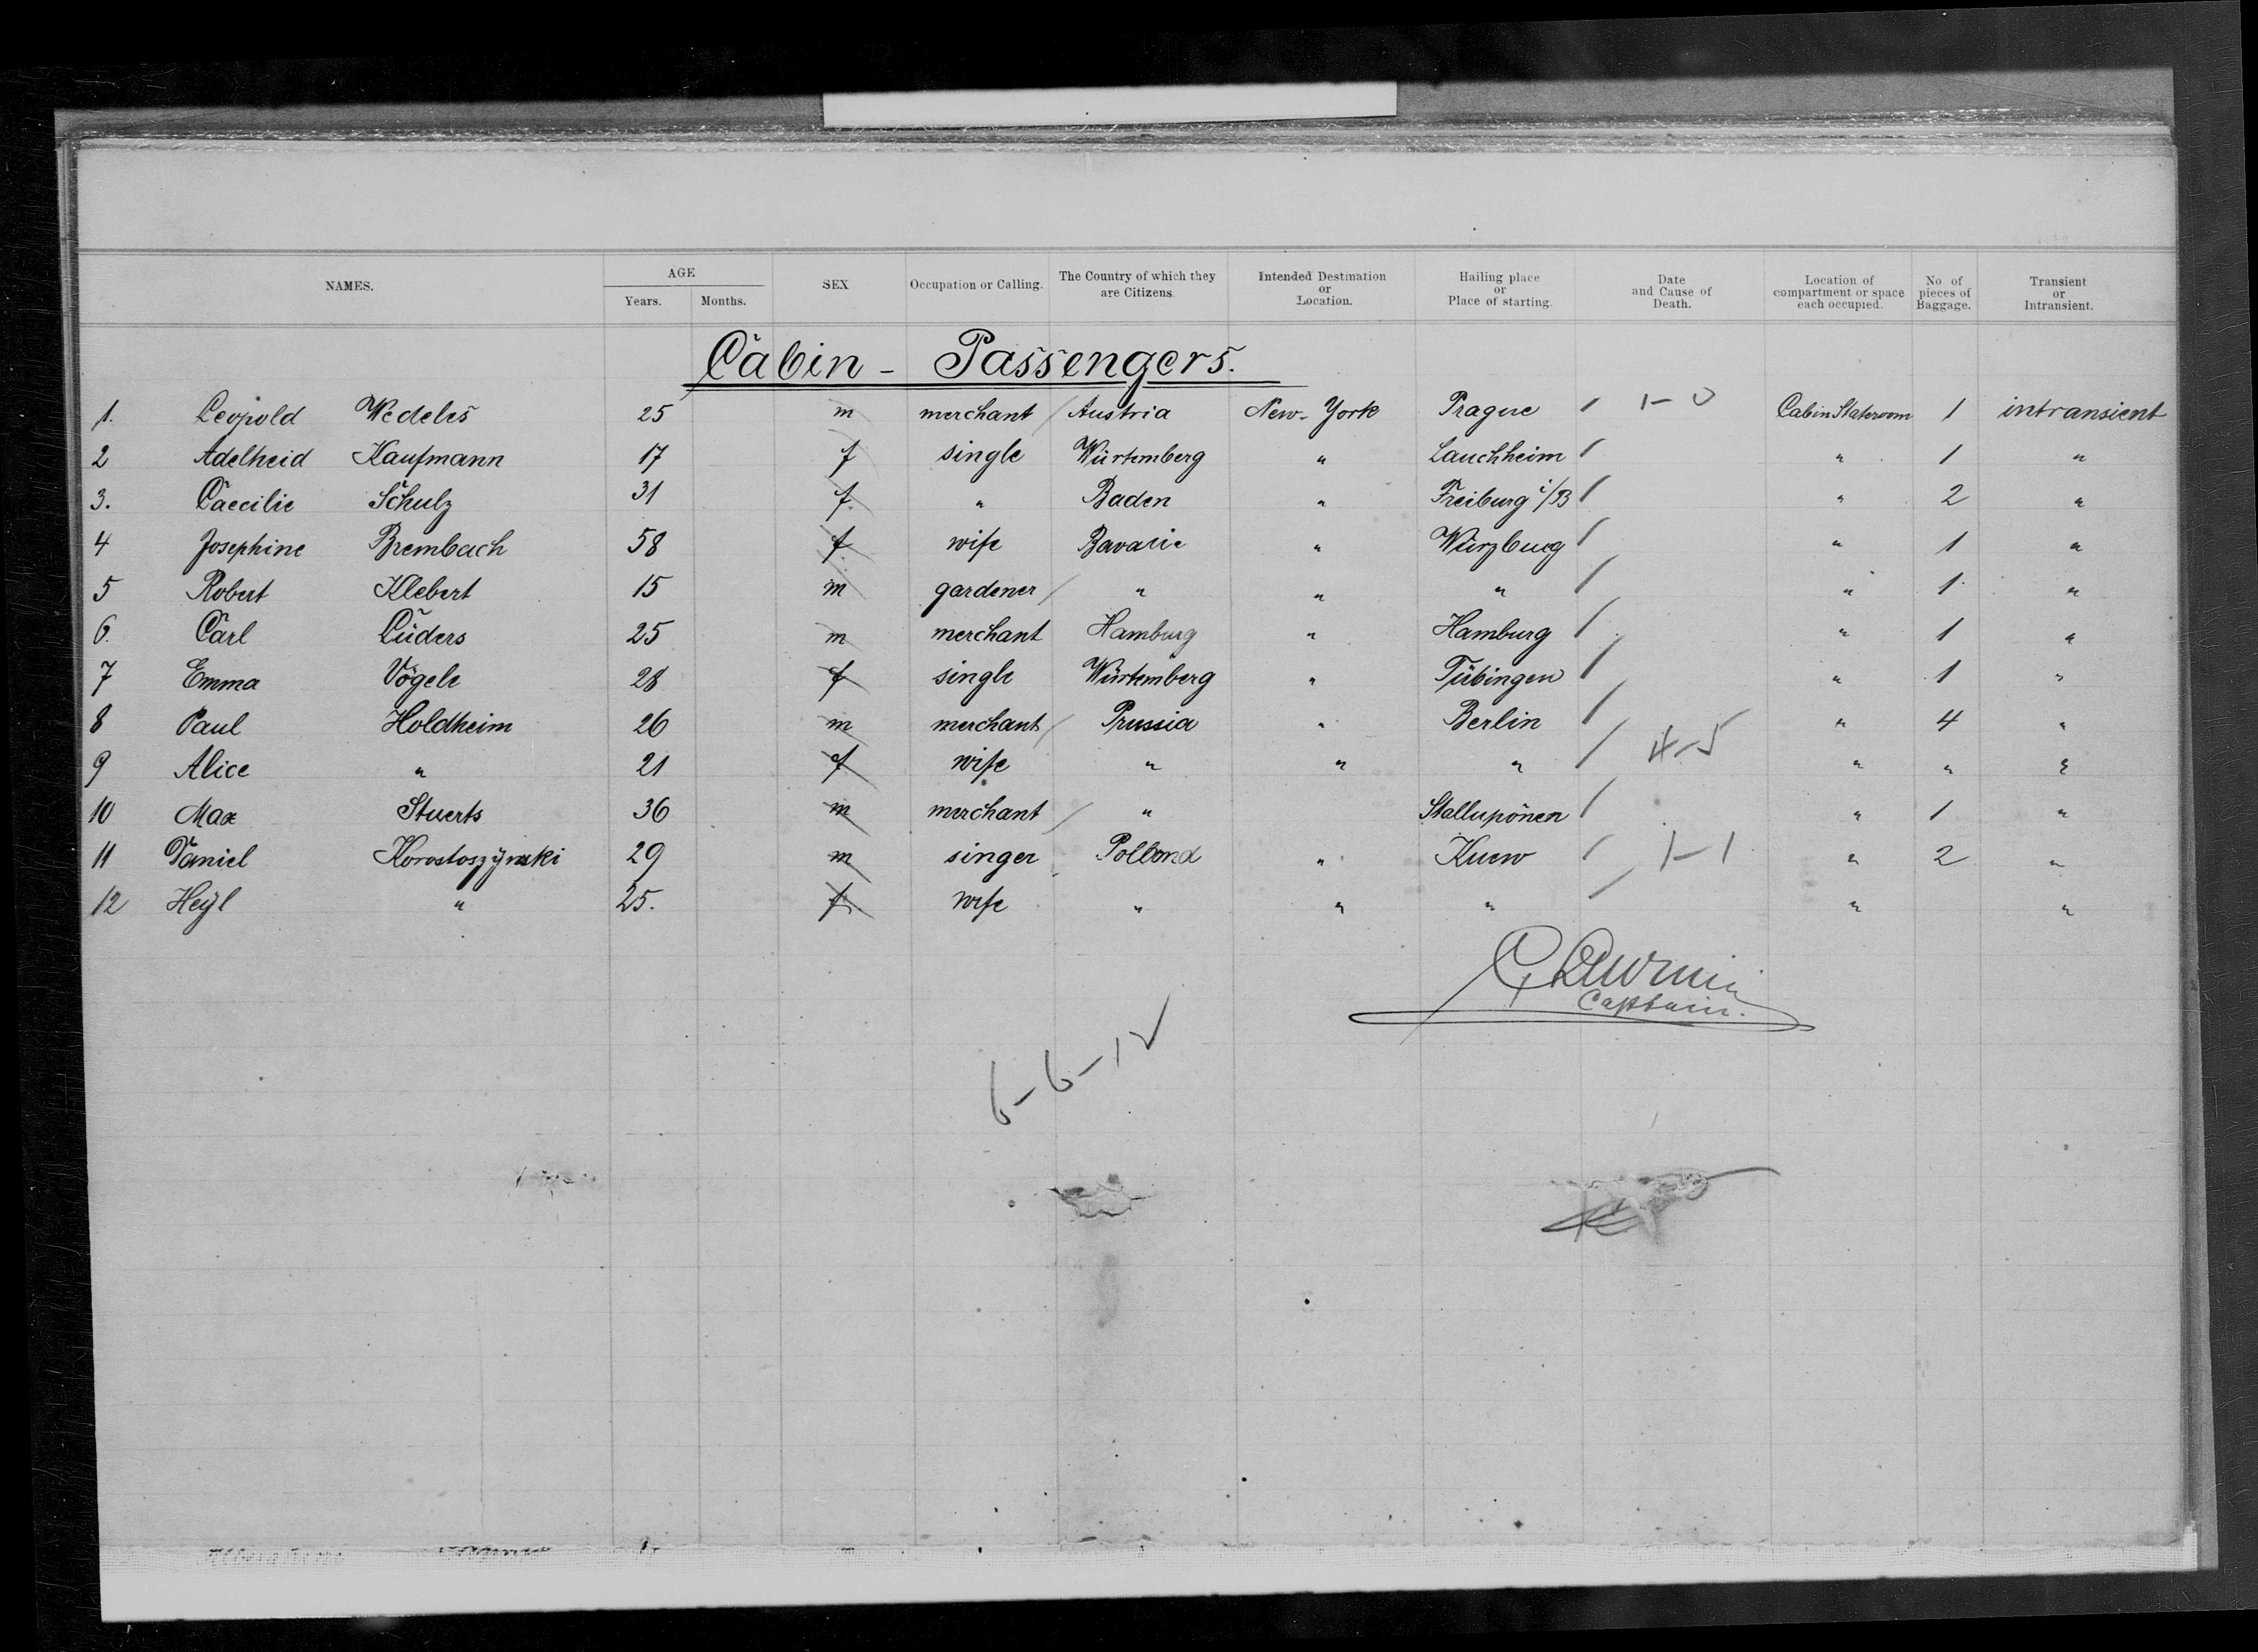 NAMES. AGE Years. Months. SEX Occupation or Calling. The Country of which they are Citizens. Intended Destination or Location. Hailing place or Place of starting. Date and Cause of Death. Location of compartment or space each occupied. No. of pieces of Baggage. Transient or Intransient.
Cabin - Passengers.
1. Leopold Wedeles 25 m merchant / Austria New-York Prague / 1-0 Cabin Stateroom 1 intransient
2 Adelheid Kaufmann 17 f single Würtemberg " Lauchheim / " 1 "
3. Caecilie Schulz 31 f. " Baden " Freiburg i/B / " 2 "
4 Josephine Brembach 58 f wife Bavarie " Würzburg / " 1 "
5 Robert Klebert 15 m gardener / " " " / " 1 "
6. Carl Lüders 25 m merchant Hamburg " Hamburg / " 1 "
7 Emma Vögele 28 f single Würtemberg " Tübingen / " 1 "
8 Paul Holdheim 26 m merchant / Prussia " Berlin / " 4 "
9 Alice " 21 f wife " " " / 4-5 " " "
10 Max Stuerts 36 m merchant / " Stallupönen / " 1 "
11 Daniel 29 m singer Pollond " / 1-1 " 2 "
12 Heyl " 25. f wife " " " / " "
Captain.
6-6-12